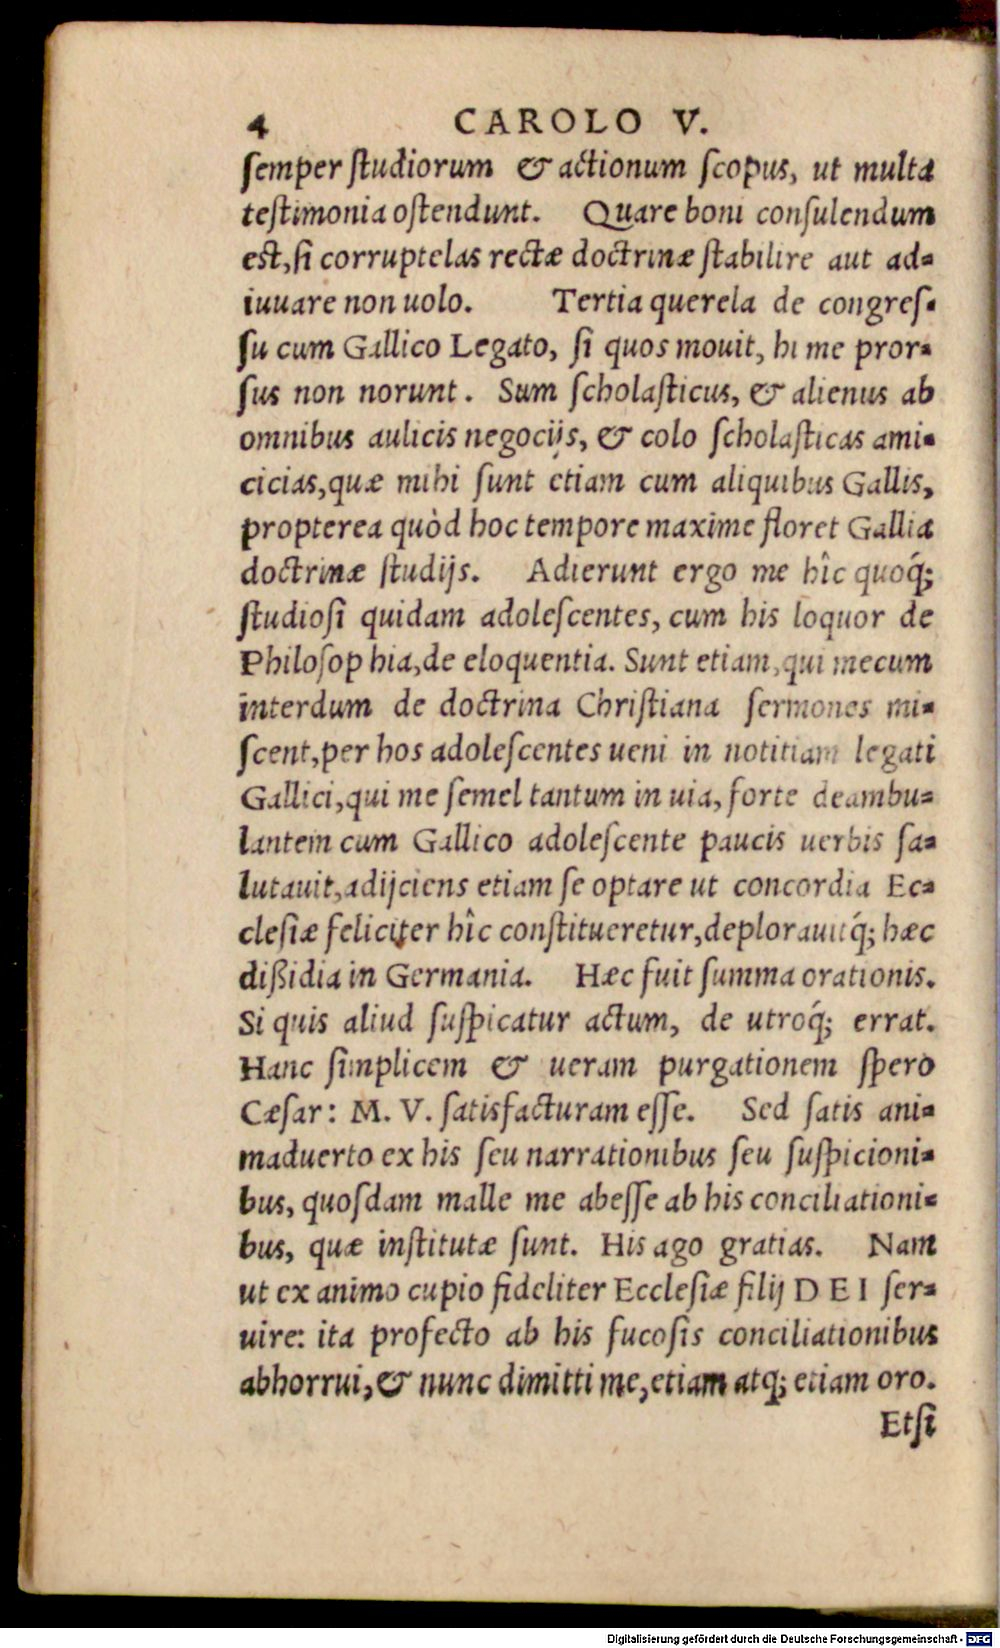 4 CAROLO V.
ſemper ſtudiorum & actionum ſcopus, ut multa
teſtimonia oſtendunt. Quare boni conſulendum
est, ſi corruptelas rectæ doctrinæ ſtabilire aut ad-
iuuare non uolo. Tertia querela de congreſ-
ſu cum Gallico Legato, ſi quos mouit, hi me pror-
ſus non norunt. Sum ſcholaſticus, & alienus ab
omnibus aulicis negocijs, & colo ſcholaſticas ami-
cicias, quæ mihi ſunt etiam cum aliquibus Gallis,
propterea quòd hoc tempore maxime floret Gallia
doctrinæ ſtudijs. Adierunt ergo me hîc quoq́;
ſtudioſi quidam adoleſcentes, cum his loquor de
Philoſophia, de eloquentia. Sunt etiam, qui mecum
interdum de doctrina Chriſtiana ſermones mi-
ſcent, per hos adoleſcentes ueni in notitiam legati
Gallici, qui me ſemel tantum in uia, forte deambu-
lantem cum Gallico adoleſcente paucis uerbis ſa-
lutauit, adijciens etiam ſe optare ut concordia Ec-
cleſiæ feliciter hîc conſtitueretur, deplorauitq́; hæc
dißidia in Germania. Hæc fuit ſumma orationis.
Si quis aliud ſuſpicatur actum, de utroq́; errat.
Hanc ſimplicem & ueram purgationem ſpero
Cæſar: M. V. ſatisfacturam eſſe. Sed ſatis ani-
maduerto ex his ſeu narrationibus ſeu ſuſpicioni-
bus, quoſdam malle me abeſſe ab his conciliationi-
bus, quæ inſtitutæ ſunt. His ago gratias. Nam
ut ex animo cupio fideliter Eccleſiæ filij DEI ſer-
uire: ita profecto ab his fucoſis conciliationibus
abhorrui, & nunc dimitti me, etiam atq; etiam oro.
Etſi
Digitalisierung gefördert durch die Deutsche Forschungsgemeinschaft - DFG